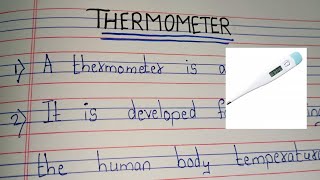 THERMOMETER
1) A thermometer is a
2) It is developed
the human body temperature